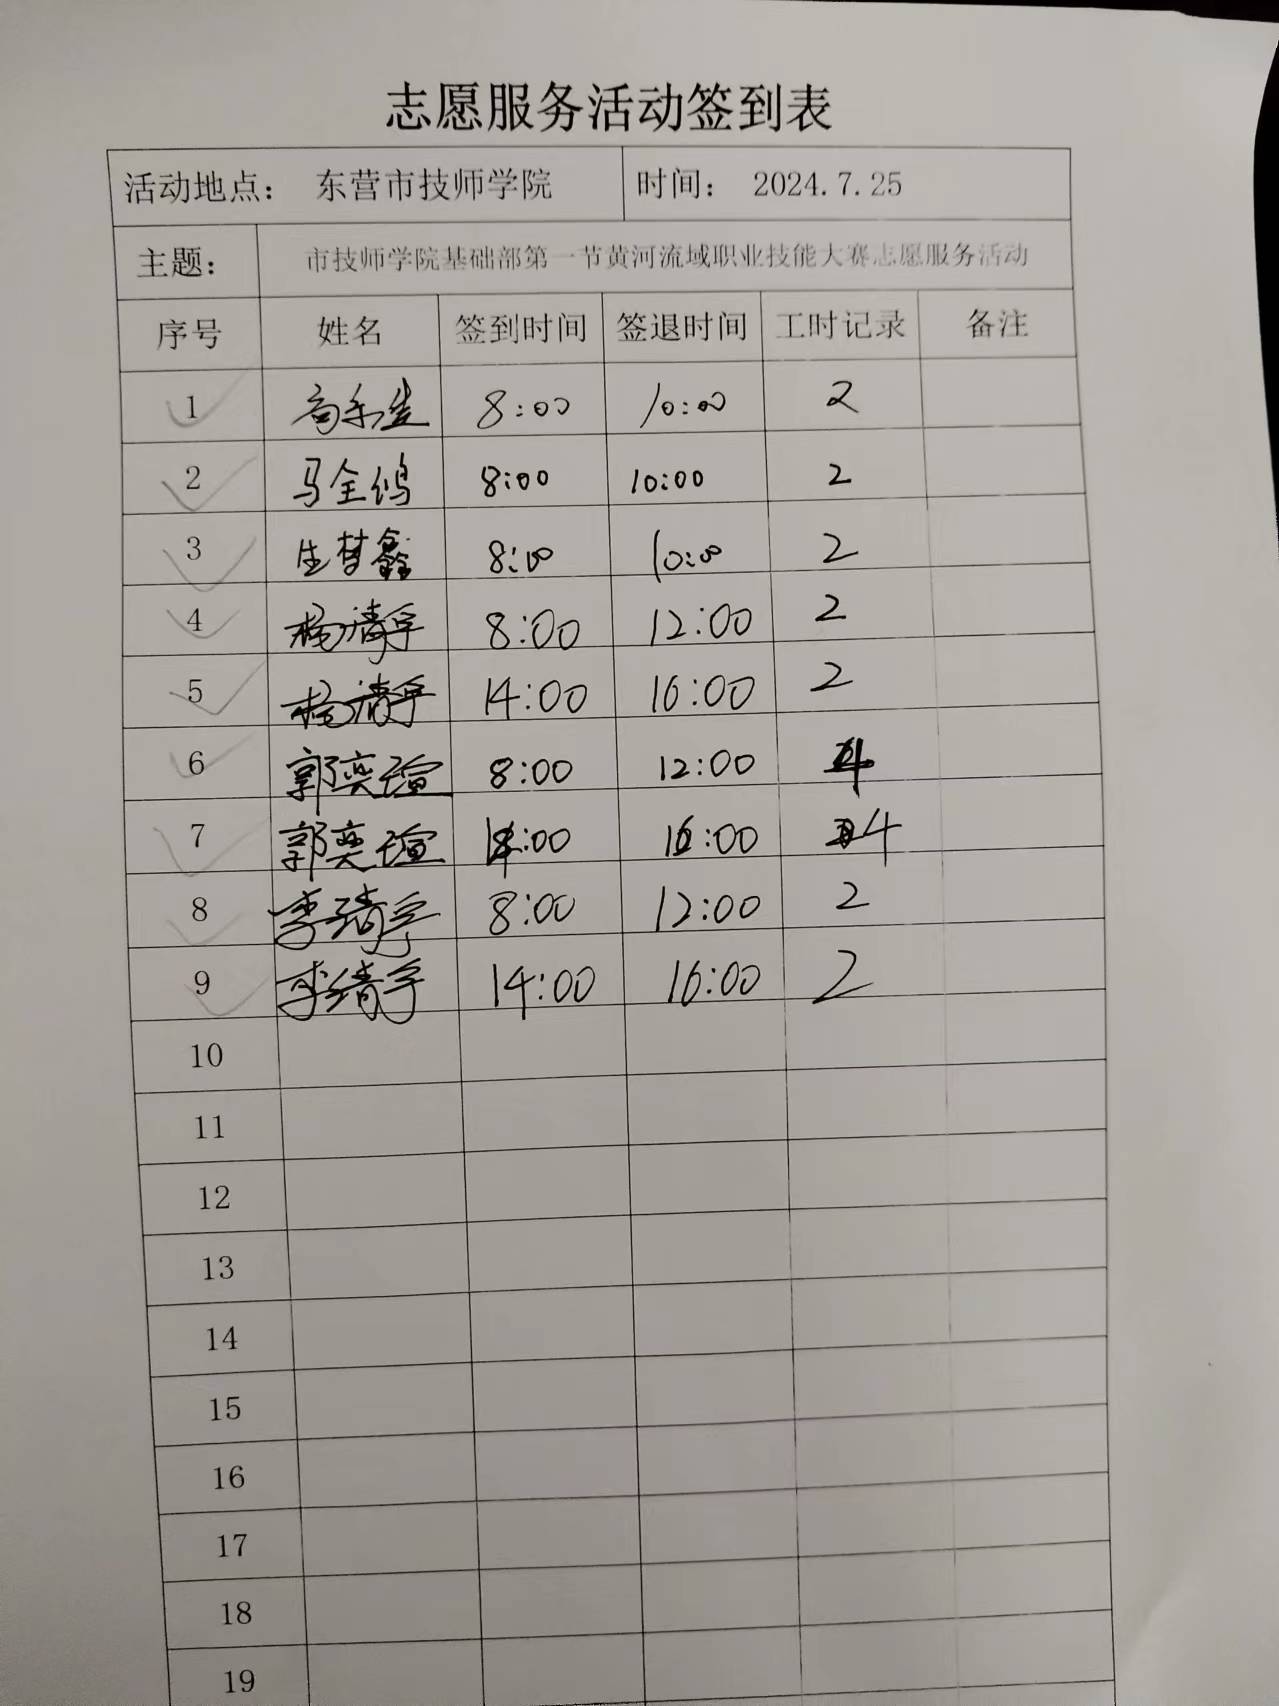 志愿服务活动签到表
活动地点： 东营市技师学院 时间： 2024.7.25
主题： 市技师学院基础部第一节黄河流域职业技能大赛志愿服务活动
序号 姓名 签到时间 签退时间 工时记录 备注
1 8:00 10:00 2
2 马全鸧 8:00 10:00 2
3 生梦鑫 8:00 10:00 2
4 杨清宇 8:00 12:00 2
5 杨清宇 14:00 16:00 2
6 郭奕瑄 8:00 12:00 4
7 郭奕瑄 14:00 16:00 4
8 李靖宇 8:00 12:00 2
9 李靖宇 14:00 16:00 2
10
11
12
13
14
15
16
17
18
19